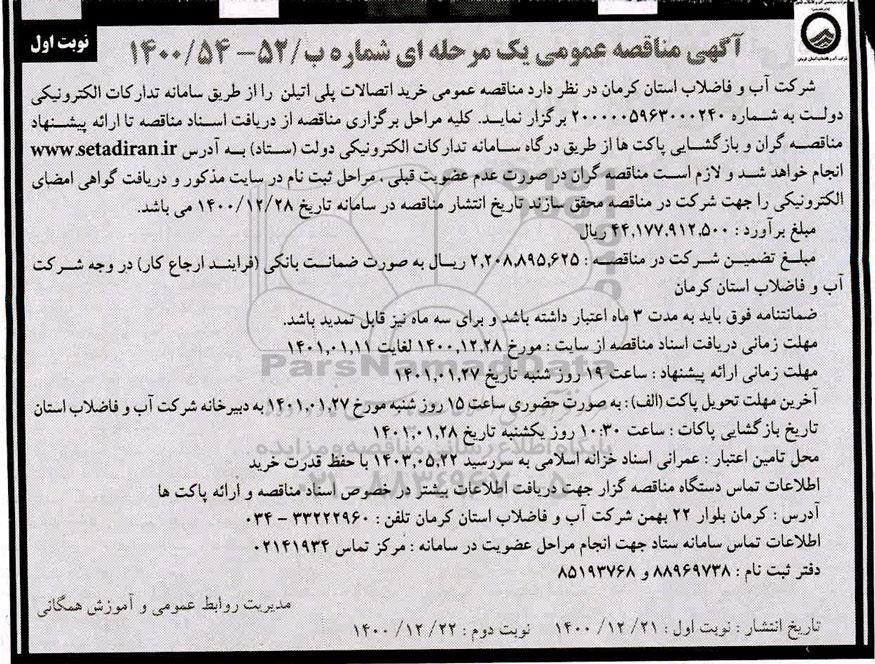 نوبت اول
شرکت آب و فاضلاب استان کرمان
آگهی مناقصه عمومی یک مرحله ای شماره ب/۵۲- ۱۴۰۰/۵۴
شرکت آب و فاضلاب استان کرمان در نظر دارد مناقصه عمومی خرید اتصالات پلی اتیلن را از طریق سامانه تدارکات الکترونیکی
دولت به شماره ۲۰۰۰۰۰۵۹۶۳۰۰۰۲۴۰ برگزار نماید. کلیه مراحل برگزاری مناقصه از دریافت اسناد مناقصه تا ارائه پیشنهاد
مناقصه گران و بازگشایی پاکت ها از طریق درگاه سامانه تدارکات الکترونیکی دولت (ستاد) به آدرس www.setadiran.ir
انجام خواهد شد و لازم است مناقصه گران در صورت عدم عضویت قبلی ، مراحل ثبت نام در سایت مذکور و دریافت گواهی امضای
الکترونیکی را جهت شرکت در مناقصه محقق سازند تاریخ انتشار مناقصه در سامانه تاریخ ۱۴۰۰/۱۲/۲۸ می باشد.
مبلغ برآورد : ۴۴,۱۷۷,۹۱۲,۵۰۰ ریال
مبلغ تضمین شرکت در مناقصه : ۲,۲۰۸,۸۹۵,۶۲۵ ریال به صورت ضمانت بانکی (فرایند ارجاع کار) در وجه شرکت
آب و فاضلاب استان کرمان
ضمانتنامه فوق باید به مدت ۳ ماه اعتبار داشته باشد و برای سه ماه نیز قابل تمدید باشد.
مهلت زمانی دریافت اسناد مناقصه از سایت : مورخ ۱۴۰۰,۱۲,۲۸ لغایت ۱۴۰۱,۰۱,۱۱
ParsNamadData
مهلت زمانی ارائه پیشنهاد : ساعت ۱۹ روز شنبه تاریخ ۱۴۰۱,۰۱,۲۷
آخرین مهلت تحویل پاکت (الف) : به صورت حضوری ساعت ۱۵ روز شنبه مورخ ۱۴۰۱,۰۱,۲۷ به دبیرخانه شرکت آب و فاضلاب استان
تاریخ بازگشایی پاکات : ساعت ۱۰:۳۰ روز یکشنبه تاریخ ۱۴۰۱,۰۱,۲۸
پایگاه اطلاع رسانی مناقصه و مزایده
محل تامین اعتبار : عمرانی اسناد خزانه اسلامی به سررسید ۱۴۰۳,۰۵,۲۲ با حفظ قدرت خرید
۰۲۱-۸۸۳۴۹۶۷۰-۵
اطلاعات تماس دستگاه مناقصه گزار جهت دریافت اطلاعات بیشتر در خصوص اسناد مناقصه و ارائه پاکت ها
آدرس : کرمان بلوار ۲۲ بهمن شرکت آب و فاضلاب استان کرمان تلفن : ۳۳۲۲۲۹۶۰ - ۰۳۴
اطلاعات تماس سامانه ستاد جهت انجام مراحل عضویت در سامانه : مرکز تماس ۰۲۱۴۱۹۳۴
دفتر ثبت نام : ۸۸۹۶۹۷۳۸ و ۸۵۱۹۳۷۶۸
مدیریت روابط عمومی و آموزش همگانی
تاریخ انتشار : نوبت اول : ۲۱/ ۱۲/ ۱۴۰۰ نوبت دوم : ۲۲/ ۱۲/ ۱۴۰۰